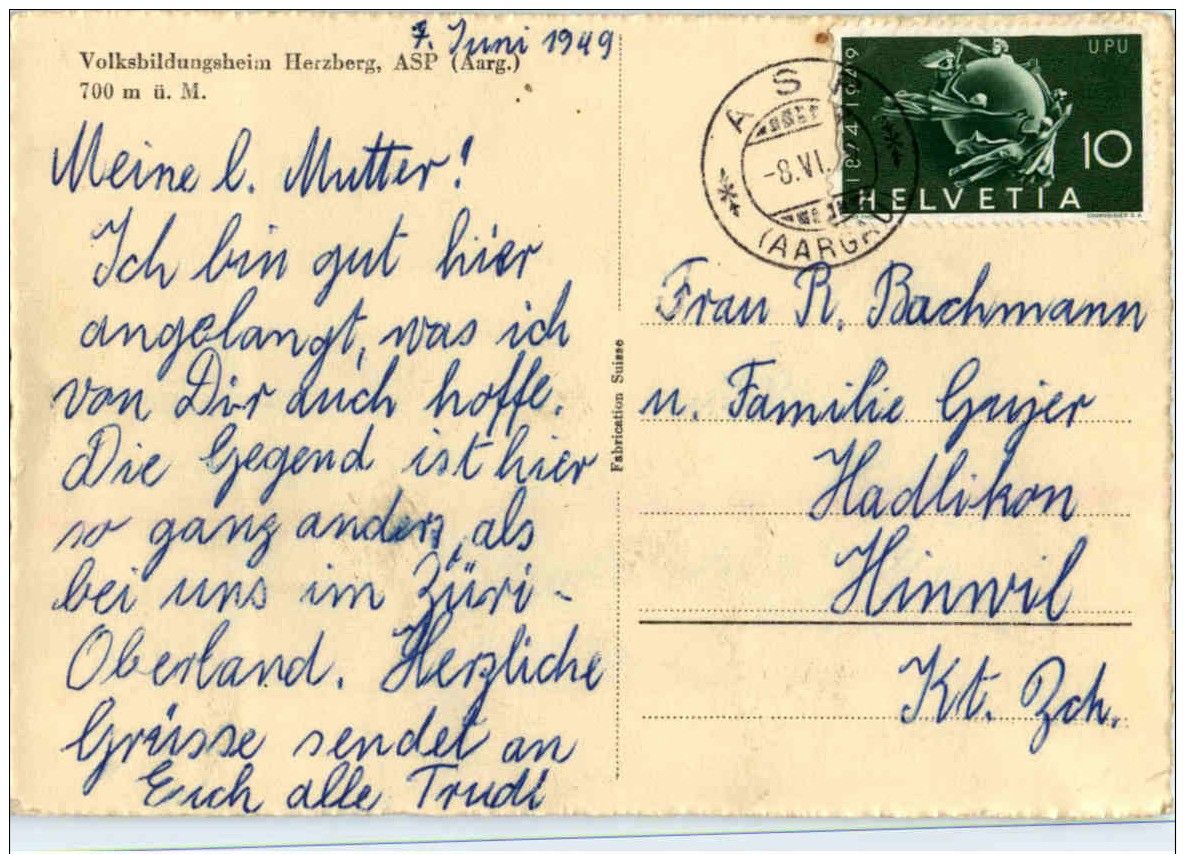 7. Juni 1949
Volksbildungsheim Herzberg, ASP (Aarg.)
700 m ü. M.
Meine l. Mutter!
Ich bin gut hier
angelangt, was ich
von Dir auch hoffe.
Die Gegend ist hier
so ganz anders, als
bei uns im Züri-
Oberland. Herzliche
Grüsse sendet an
Euch alle Trudi
Fabrication Suisse
ASP
-8.VI.
(AARGAU
1874 1949
UPU
10
HELVETIA
Frau R. Bachmann
u. Familie Gujer
Hadlikon
Hinwil
Kt. Zch.